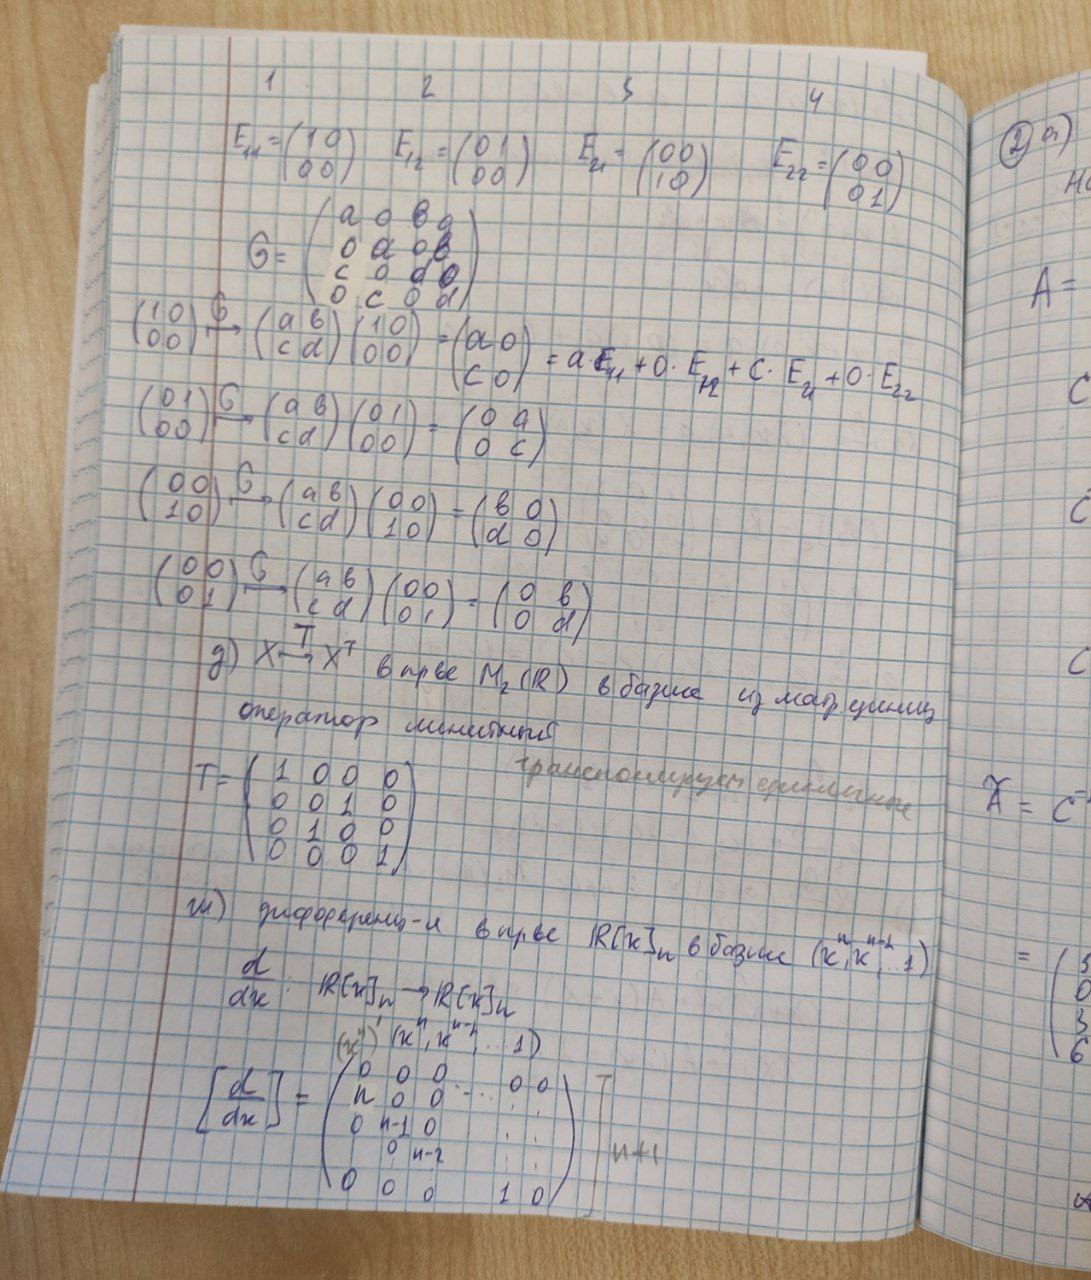 1 2 3 4
E₁₁ = (1 0 / 0 0) E₁₂ = (0 1 / 0 0) E₂₁ = (0 0 / 1 0) E₂₂ = (0 0 / 0 1)
G = (a 0 b 0 / 0 a 0 b / c 0 d 0 / 0 c 0 d)
(1 0 / 0 0) G→ (a b / c d) (1 0 / 0 0) = (a 0 / c 0) = a·E₁₁ + 0·E₁₂ + c·E₂₁ + 0·E₂₂
(0 1 / 0 0) G→ (a b / c d) (0 1 / 0 0) = (0 a / 0 c)
(0 0 / 1 0) G→ (a b / c d) (0 0 / 1 0) = (b 0 / d 0)
(0 0 / 0 1) G→ (a b / c d) (0 0 / 0 1) = (0 b / 0 d)
д) X T→ Xᵀ в пр-ве M₂(ℝ) в базисе из матр единиц
оператор линейный
транспонирует единичные
T = (1 0 0 0 / 0 0 1 0 / 0 1 0 0 / 0 0 0 1)
ж) дифференц-я в пр-ве ℝ[x]ₙ в базисе (xⁿ, xⁿ⁻¹, ... 1)
d/dx : ℝ[x]ₙ → ℝ[x]ₙ
(xⁿ)' (xⁿ, xⁿ⁻¹, ... 1)
[d/dx] = (0 0 0 ... 0 0 / n 0 0 : : / 0 n-1 0 : : / 0 n-2 : : / 0 0 0 1 0) n+1
② а)
A =
C
C
C
Ã = C
= (3 / 0 / 3 / 6